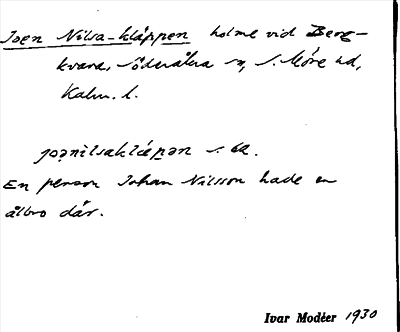 Joen Nilsa-kläppen holme vid Berg-
kvara, Söderåkra sn, S. Möre hd,
Kalm. l.
joənilsakläpən s. ea.
En person Johan Nilsson hade en
ålbro där.
Ivar Modéer 1930